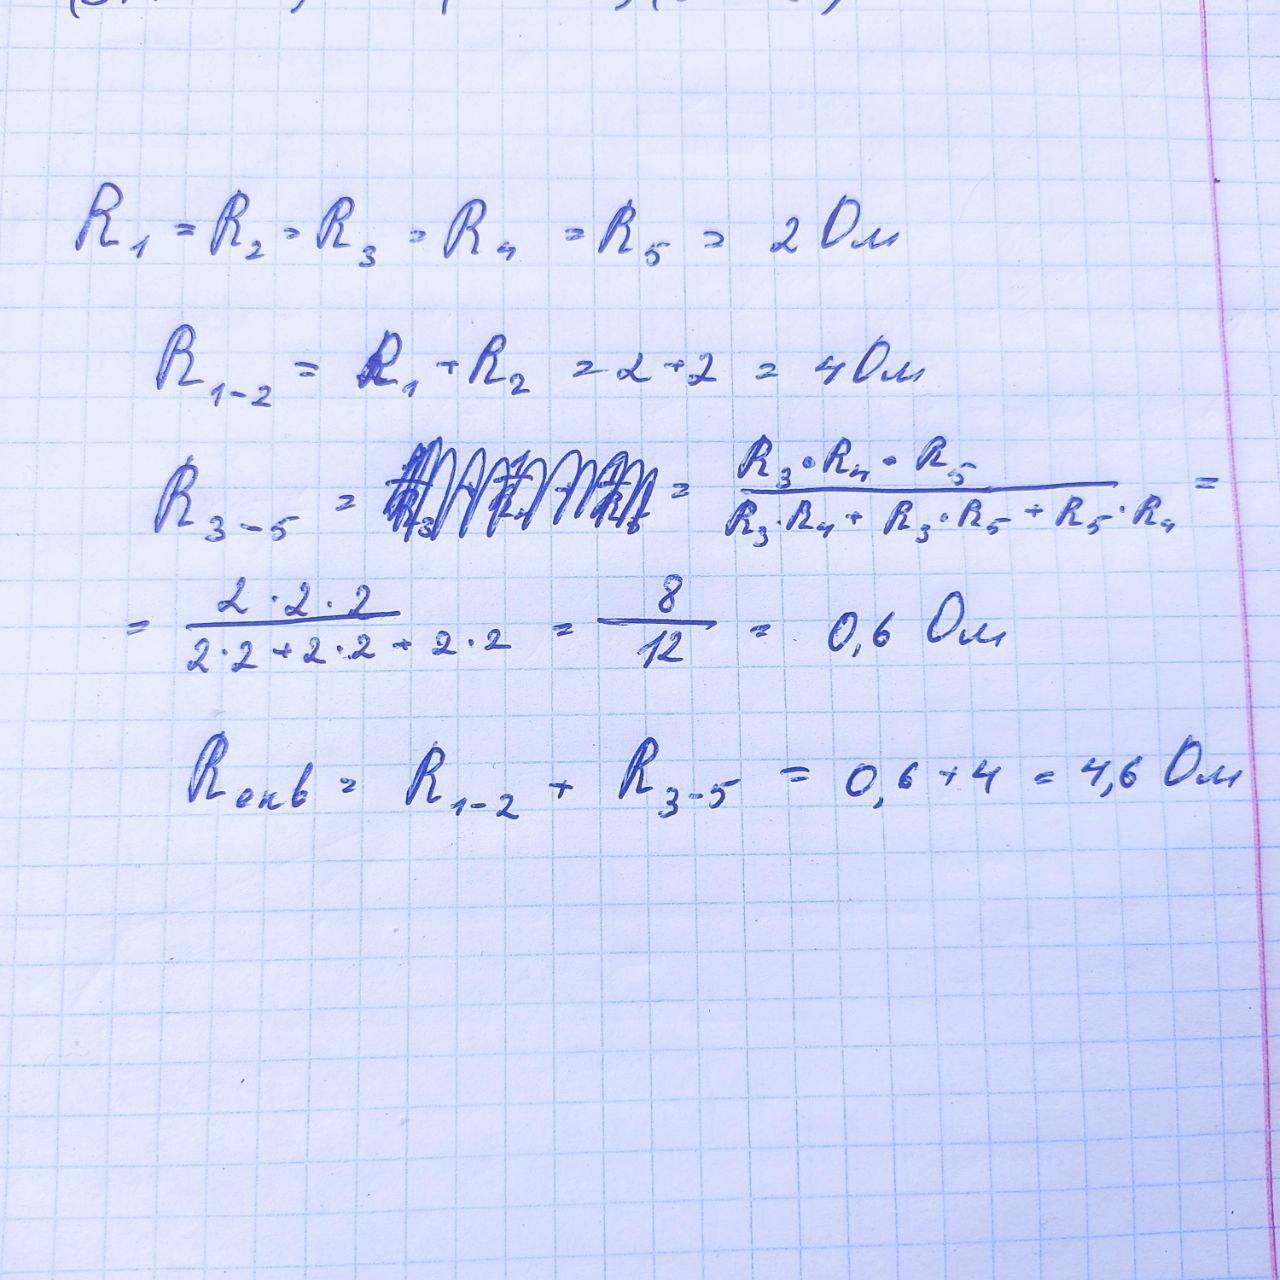 R₁ = R₂ = R₃ = R₄ = R₅ = 2 Ом
R₁₋₂ = R₁ + R₂ = 2 + 2 = 4 Ом
R₃₋₅ = = R₃ · R₄ · R₅ / R₃ · R₄ + R₃ · R₅ + R₅ · R₄ =
= 2 · 2 · 2 / 2 · 2 + 2 · 2 + 2 · 2 = 8 / 12 = 0,6 Ом
Rекв = R₁₋₂ + R₃₋₅ = 0,6 + 4 = 4,6 Ом